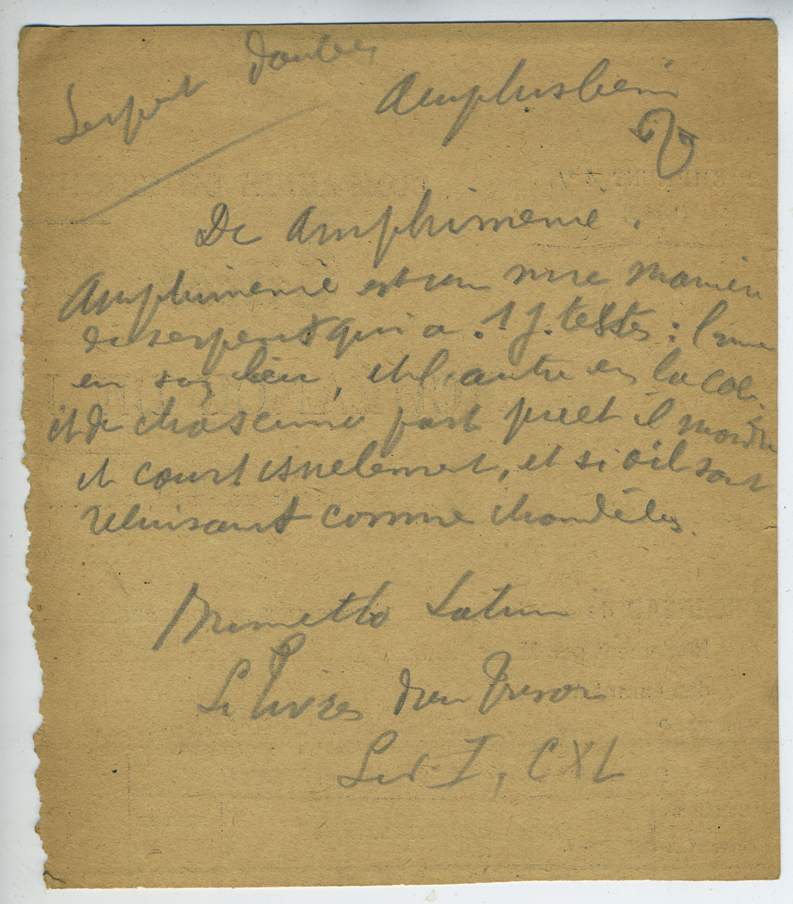 Serpent double
Amphisbène
De Amphimenie.
Amphimenie est une maniere
de serpent qui a .ij. testes: l'une
en son lieu, et l'autre en la coe,
et de chascune part puet il mordre
et court isnelement, et si oil sont
reluisant comme chandeles.
Brunetto Latini
Li Livres dou Tresor
Liv. I, CXL